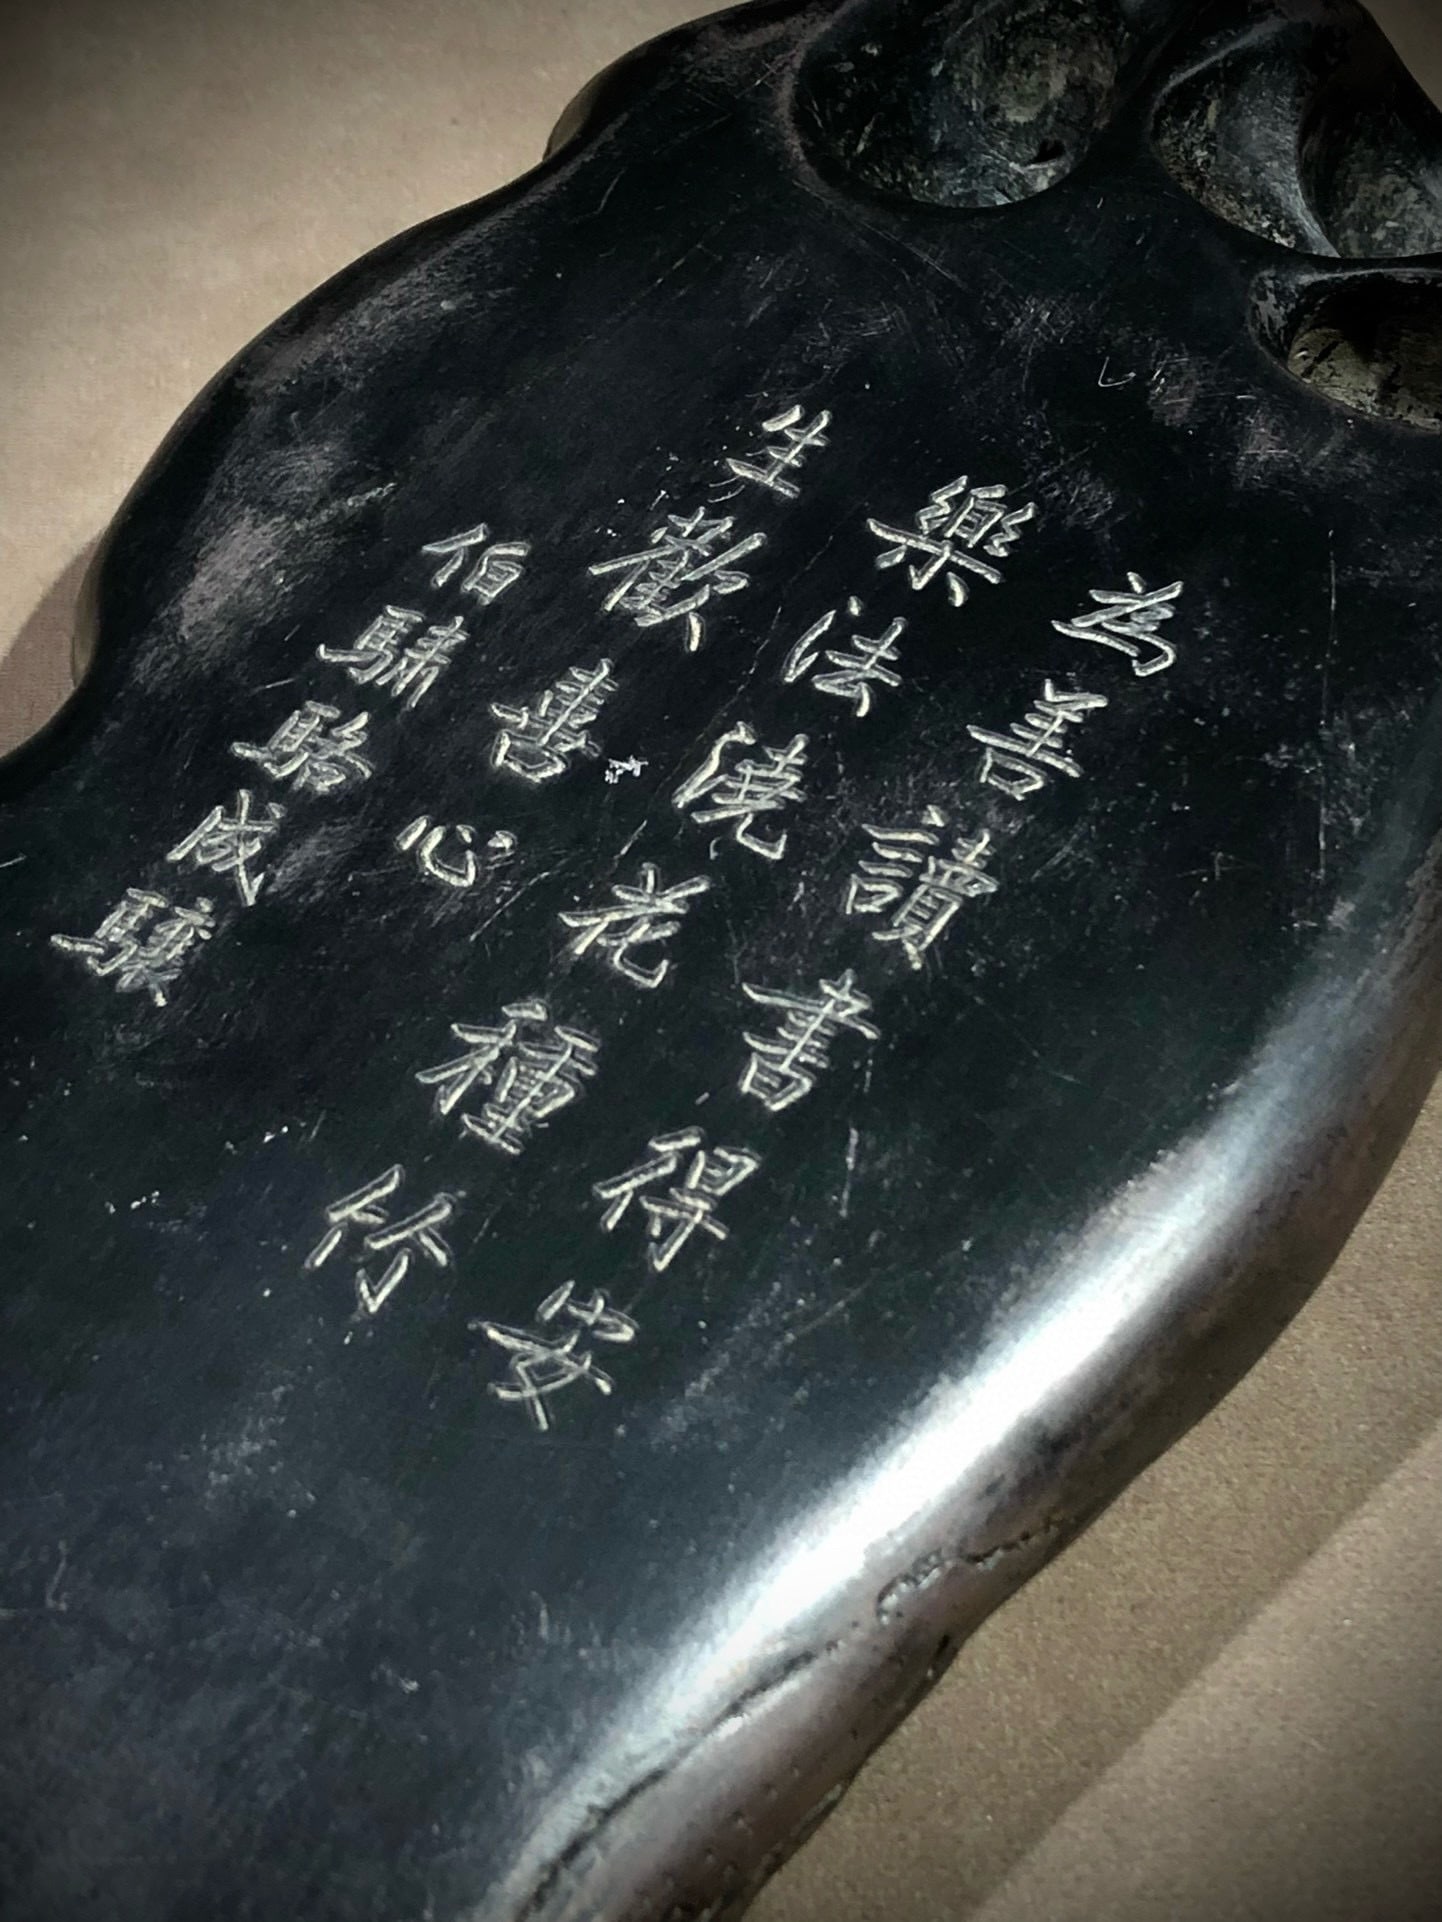 為善讀書得安
樂法澆花種竹
生歡喜心
伯驌駱成驤